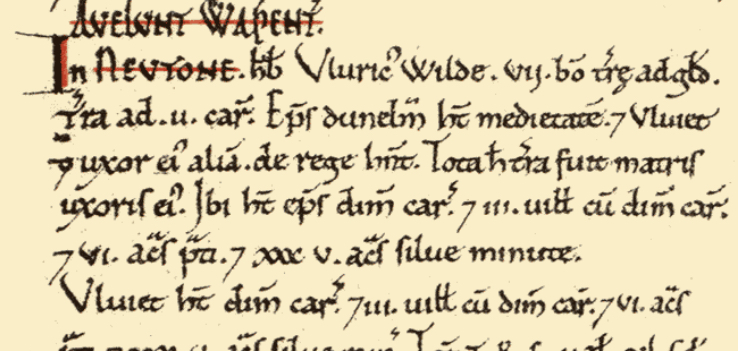 AVELUNT WAPENT̃.
In NEUTONE. ħb Vluric᾽ Wilde. vii. bō tr̃ę ad głd.
Tr̃a ad. v. car̃. Ep̃s dunelm̃ ht̃ medietatē. ⁊ Vluiet
⁊ uxor ei᾽ aliā. de rege hñt. Tota h̄ tr̃a fuit matris
uxoris ei᾽. Ibi ht̃ ep̃s dim̃ car̃. ⁊ iii. uiłł cū dim̃ car̃.
⁊ vi. ac̃s p̃ti. ⁊ xxx v. ac̃s silue minute.
Vluiet ht̃ dim̃ car̃. ⁊ iii. uiłł cū dim̃ car̃. ⁊ vi. ac̃s